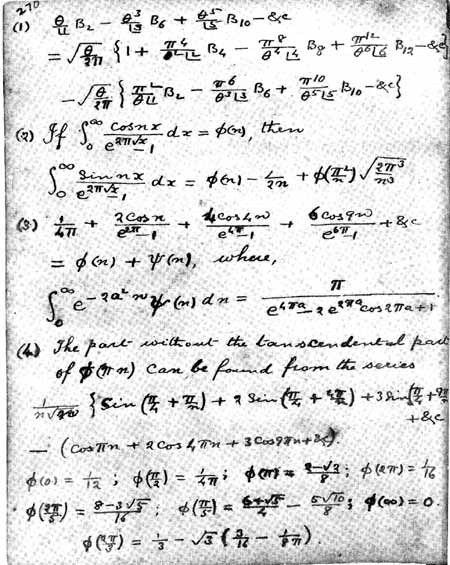 270
(1) θ/⌊1 B₂ − θ³/⌊3 B₆ + θ⁵/⌊5 B₁₀ − &c
= √(θ/2π) {1 + π⁴/(θ²⌊2) B₄ − π⁸/(θ⁴⌊4) B₈ + π¹²/(θ⁶⌊6) B₁₂ − &c}
− √(θ/2π) {π²/(θ⌊1) B₂ − π⁶/(θ³⌊3) B₆ + π¹⁰/(θ⁵⌊5) B₁₀ − &c}
(2) If ∫₀^∞ cos nx/(e^{2π√x} − 1) dx = φ(n), then
∫₀^∞ sin nx/(e^{2π√x} − 1) dx = φ(n) − 1/2n + φ(π²/n) √(2π³/n³)
(3) 1/4π + 2cos n/(e^{2π} − 1) + 4cos 4n/(e^{4π} − 1) + 6cos 9n/(e^{6π} − 1) + &c
= φ(n) + ψ(n), where,
∫₀^∞ e^{−2a²n} ψ(n) dn = π/(e^{4πa} − 2e^{2πa} cos 2πa + 1)
(4) The part without the transcendental part
of φ(πn) can be found from the series
1/(n√2n) {Sin(π/4 + π/n) + 2 Sin(π/4 + 4π/n) + 3 Sin(π/4 + 9π/n) + &c
− (Cos πn + 2 cos 4πn + 3 Cos 9πn + &c).
φ(0) = 1/12 ; φ(π/2) = 1/4π ; φ(π) = (2−√2)/8 ; φ(2π) = 1/16
φ(2π/5) = (8−3√5)/16 ; φ(π/5) = (6+√5)/4 − 5√10/8 ; φ(∞) = 0.
φ(2π/3) = 1/3 − √3 (3/16 − 1/8π)